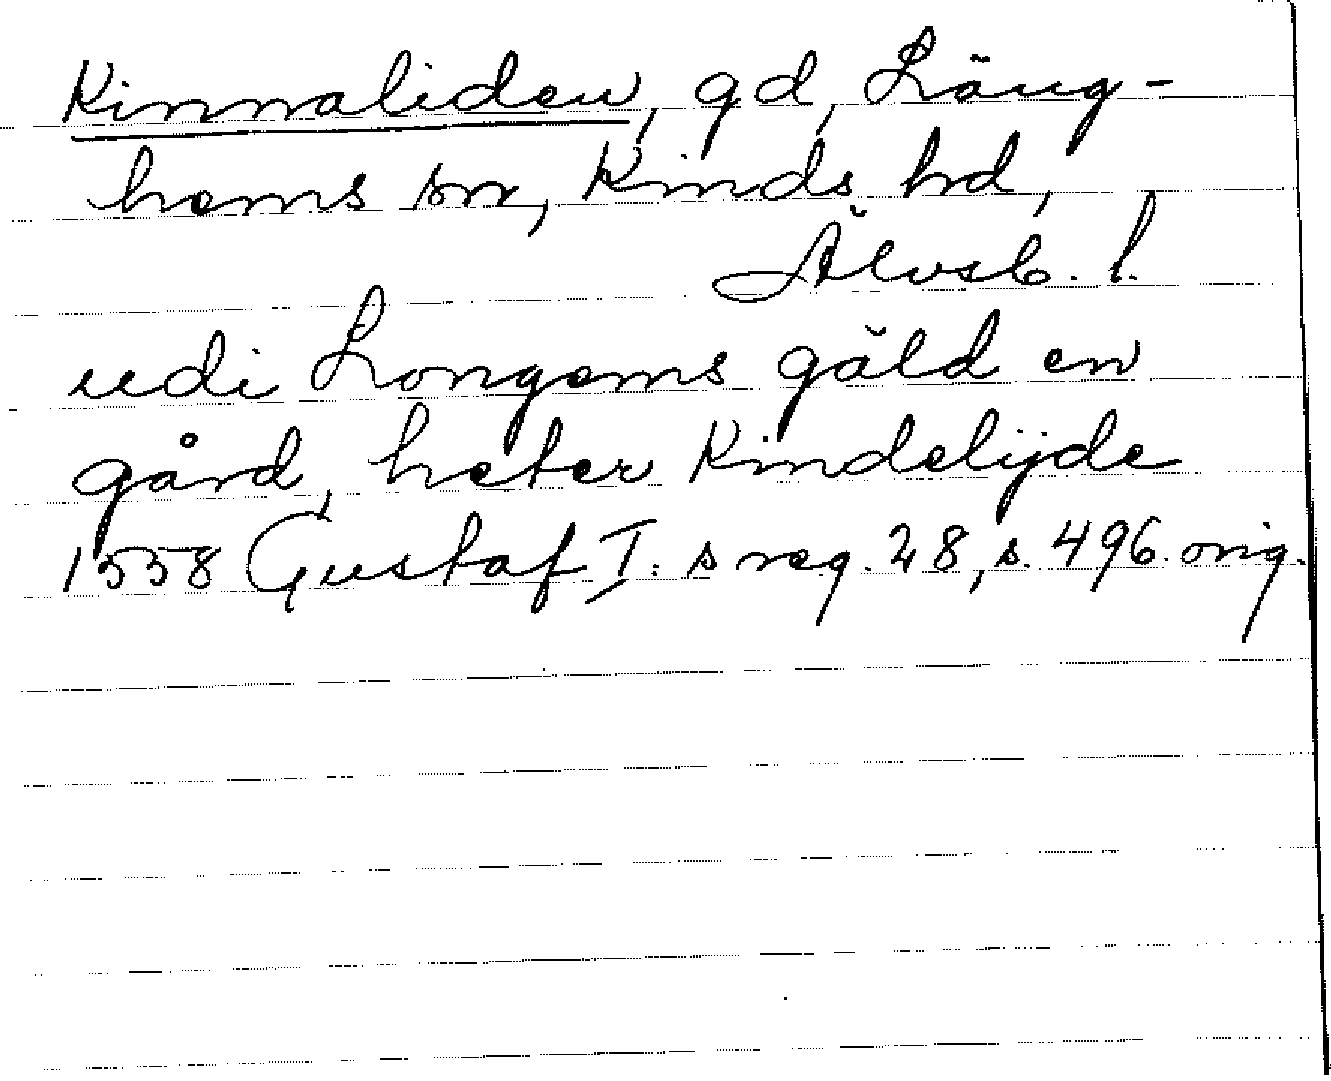 Kinnaliden, gd, Läng-
hems sn, Kinds hd,
Älvsb. l.
udi Longems gäld en
gård, heter Kindelijde
1558 Gustaf I:s reg. 28, s. 496. orig.